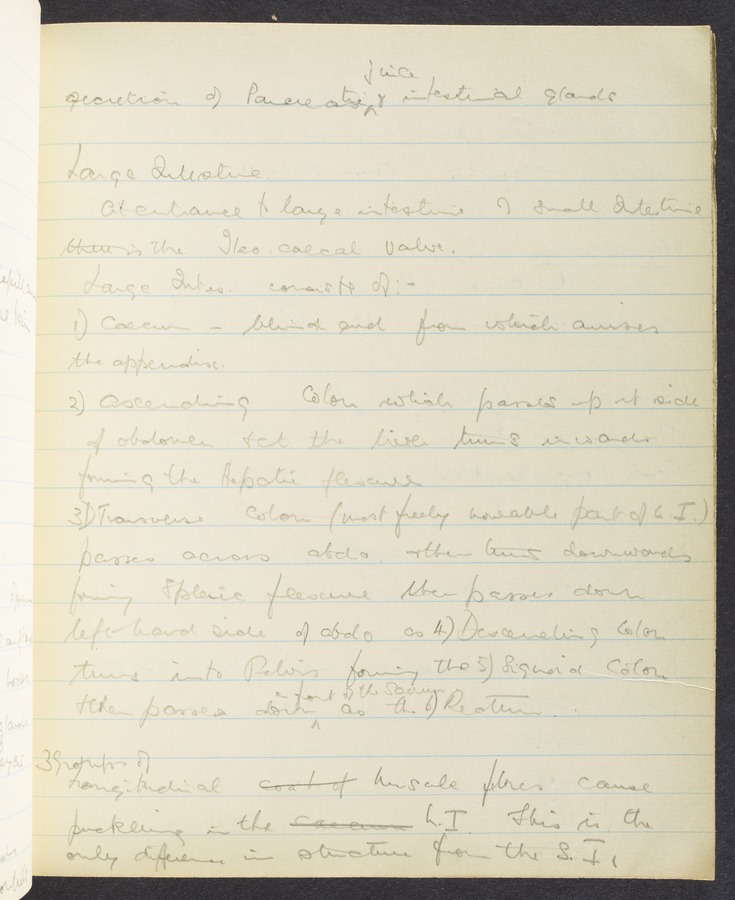 secretion of Pancreatic juice & intestinal glands
Large Intestine
At entrance to large intestine & small Intestine
there is the Ileo-caecal valve.
Large Intes. consists of :-
1) Caecum - blind end from which arises
the appendix.
2) Ascending Colon which passes up rt side
of abdomen & at the liver turns inwards
forming the Hepatic flexure
3) Transverse Colon (most freely moveable part of L.I.)
passes across abdo. & then turns downwards
forming Splenic flexure then passes down
left-hand side of abdo as 4) Descending Colon
turns into Pelvis forming the 5) Sigmoid Colon
& then passes down in front of the Sacrum as the 6) Rectum.
3 groups of
Longitudinal coat of muscle fibres cause
puckering in the caecum L.I. This is the
only difference in structure from the S.I.